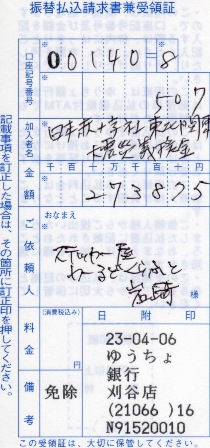 振替払込請求書兼受領証
口座記号番号
00140=8
507
加入者名
日本赤十字社 東北関東
大震災義援金
金額
千百十万千百十円
273875
ご依頼人
おなまえ
ステッカー屋
わーるどくらふと
岩崎
様
料金
(消費税込み)
円
日附印
23-04-06
ゆうちょ
銀行
刈谷店
(21066 )16
N91520010
備考
免除
記載事項を訂正した場合は、その箇所に訂正印を押してください。
この受領証は、大切に保管してください。